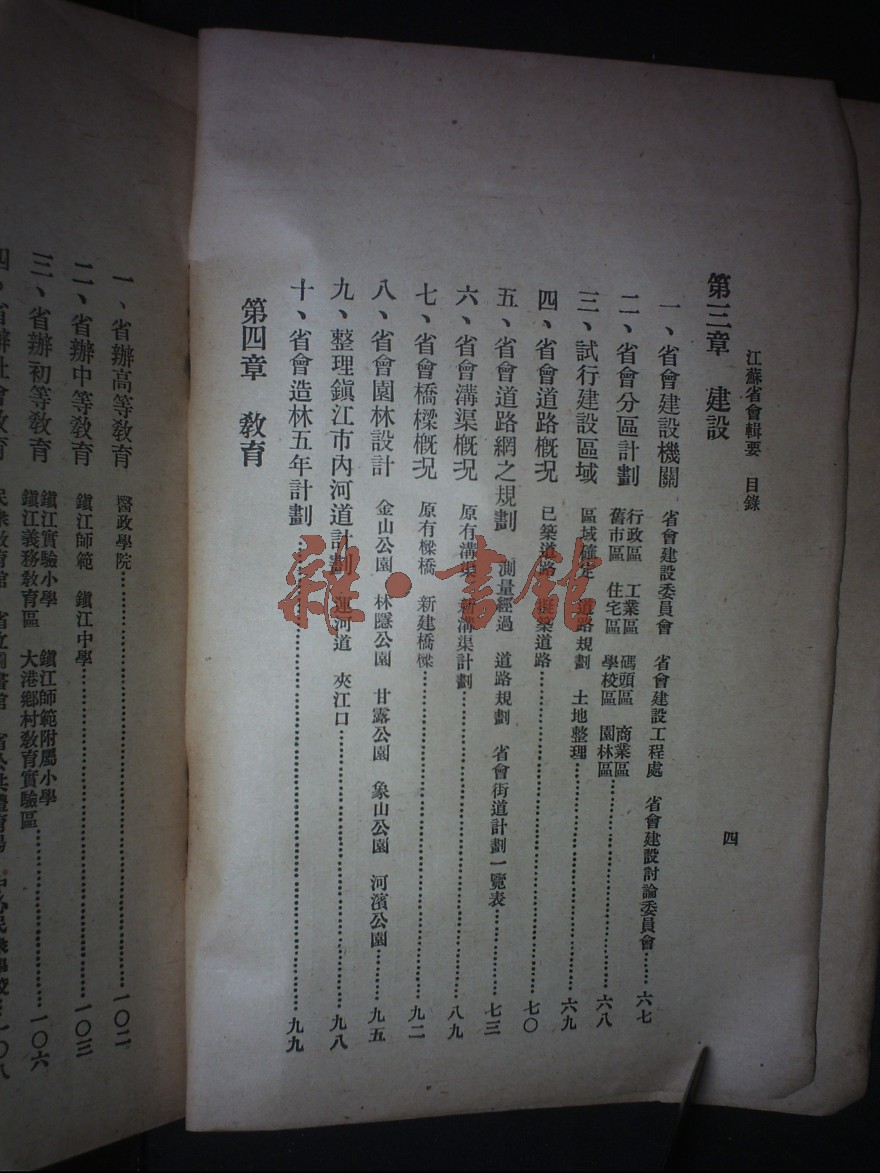 江蘇省會輯要　目錄
四
第三章　建設
一、省會建設機關　省會建設委員會　省會建設工程處　省會建設討論委員會……六七
二、省會分區計劃　行政區　工業區　碼頭區　商業區
舊市區　住宅區　學校區　園林區……六八
三、試行建設區域　區域確定　道路規劃　土地整理……六九
四、省會道路概況　已築道路　擬築道路……七〇
五、省會道路網之規劃　測量經過　道路規劃　省會街道計劃一覽表……七三
六、省會溝渠概況　原有溝渠　新溝渠計劃……八九
七、省會橋樑概況　原有樑橋　新建橋樑……九二
八、省會園林設計　金山公園　林隱公園　甘露公園　象山公園　河濱公園……九五
九、整理鎭江市內河道計劃　運河道　夾江口……九八
十、省會造林五年計劃……九九
第四章　敎育
一、省辦高等敎育　醫政學院……一〇二
二、省辦中等敎育　鎭江師範　鎭江中學……一〇三
三、省辦初等敎育　鎭江實驗小學　鎭江師範附屬小學
鎭江義務敎育區　大港鄕村敎育實驗區……一〇六
四、省辦社會敎育　民衆敎育館　省立圖書館　省公共體育場
雜·書館